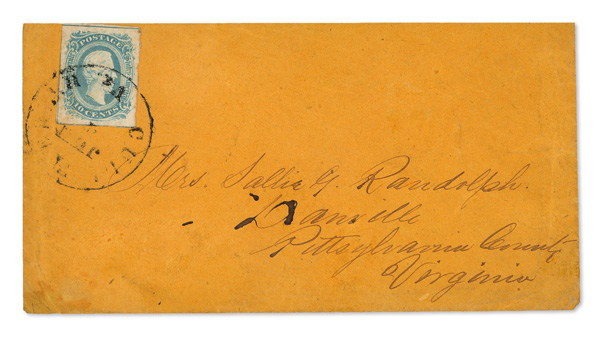 POSTAGE
10 CENTS
Mrs. Sallie G. Randolph.
Danville
Pittsylvania County
Virginia